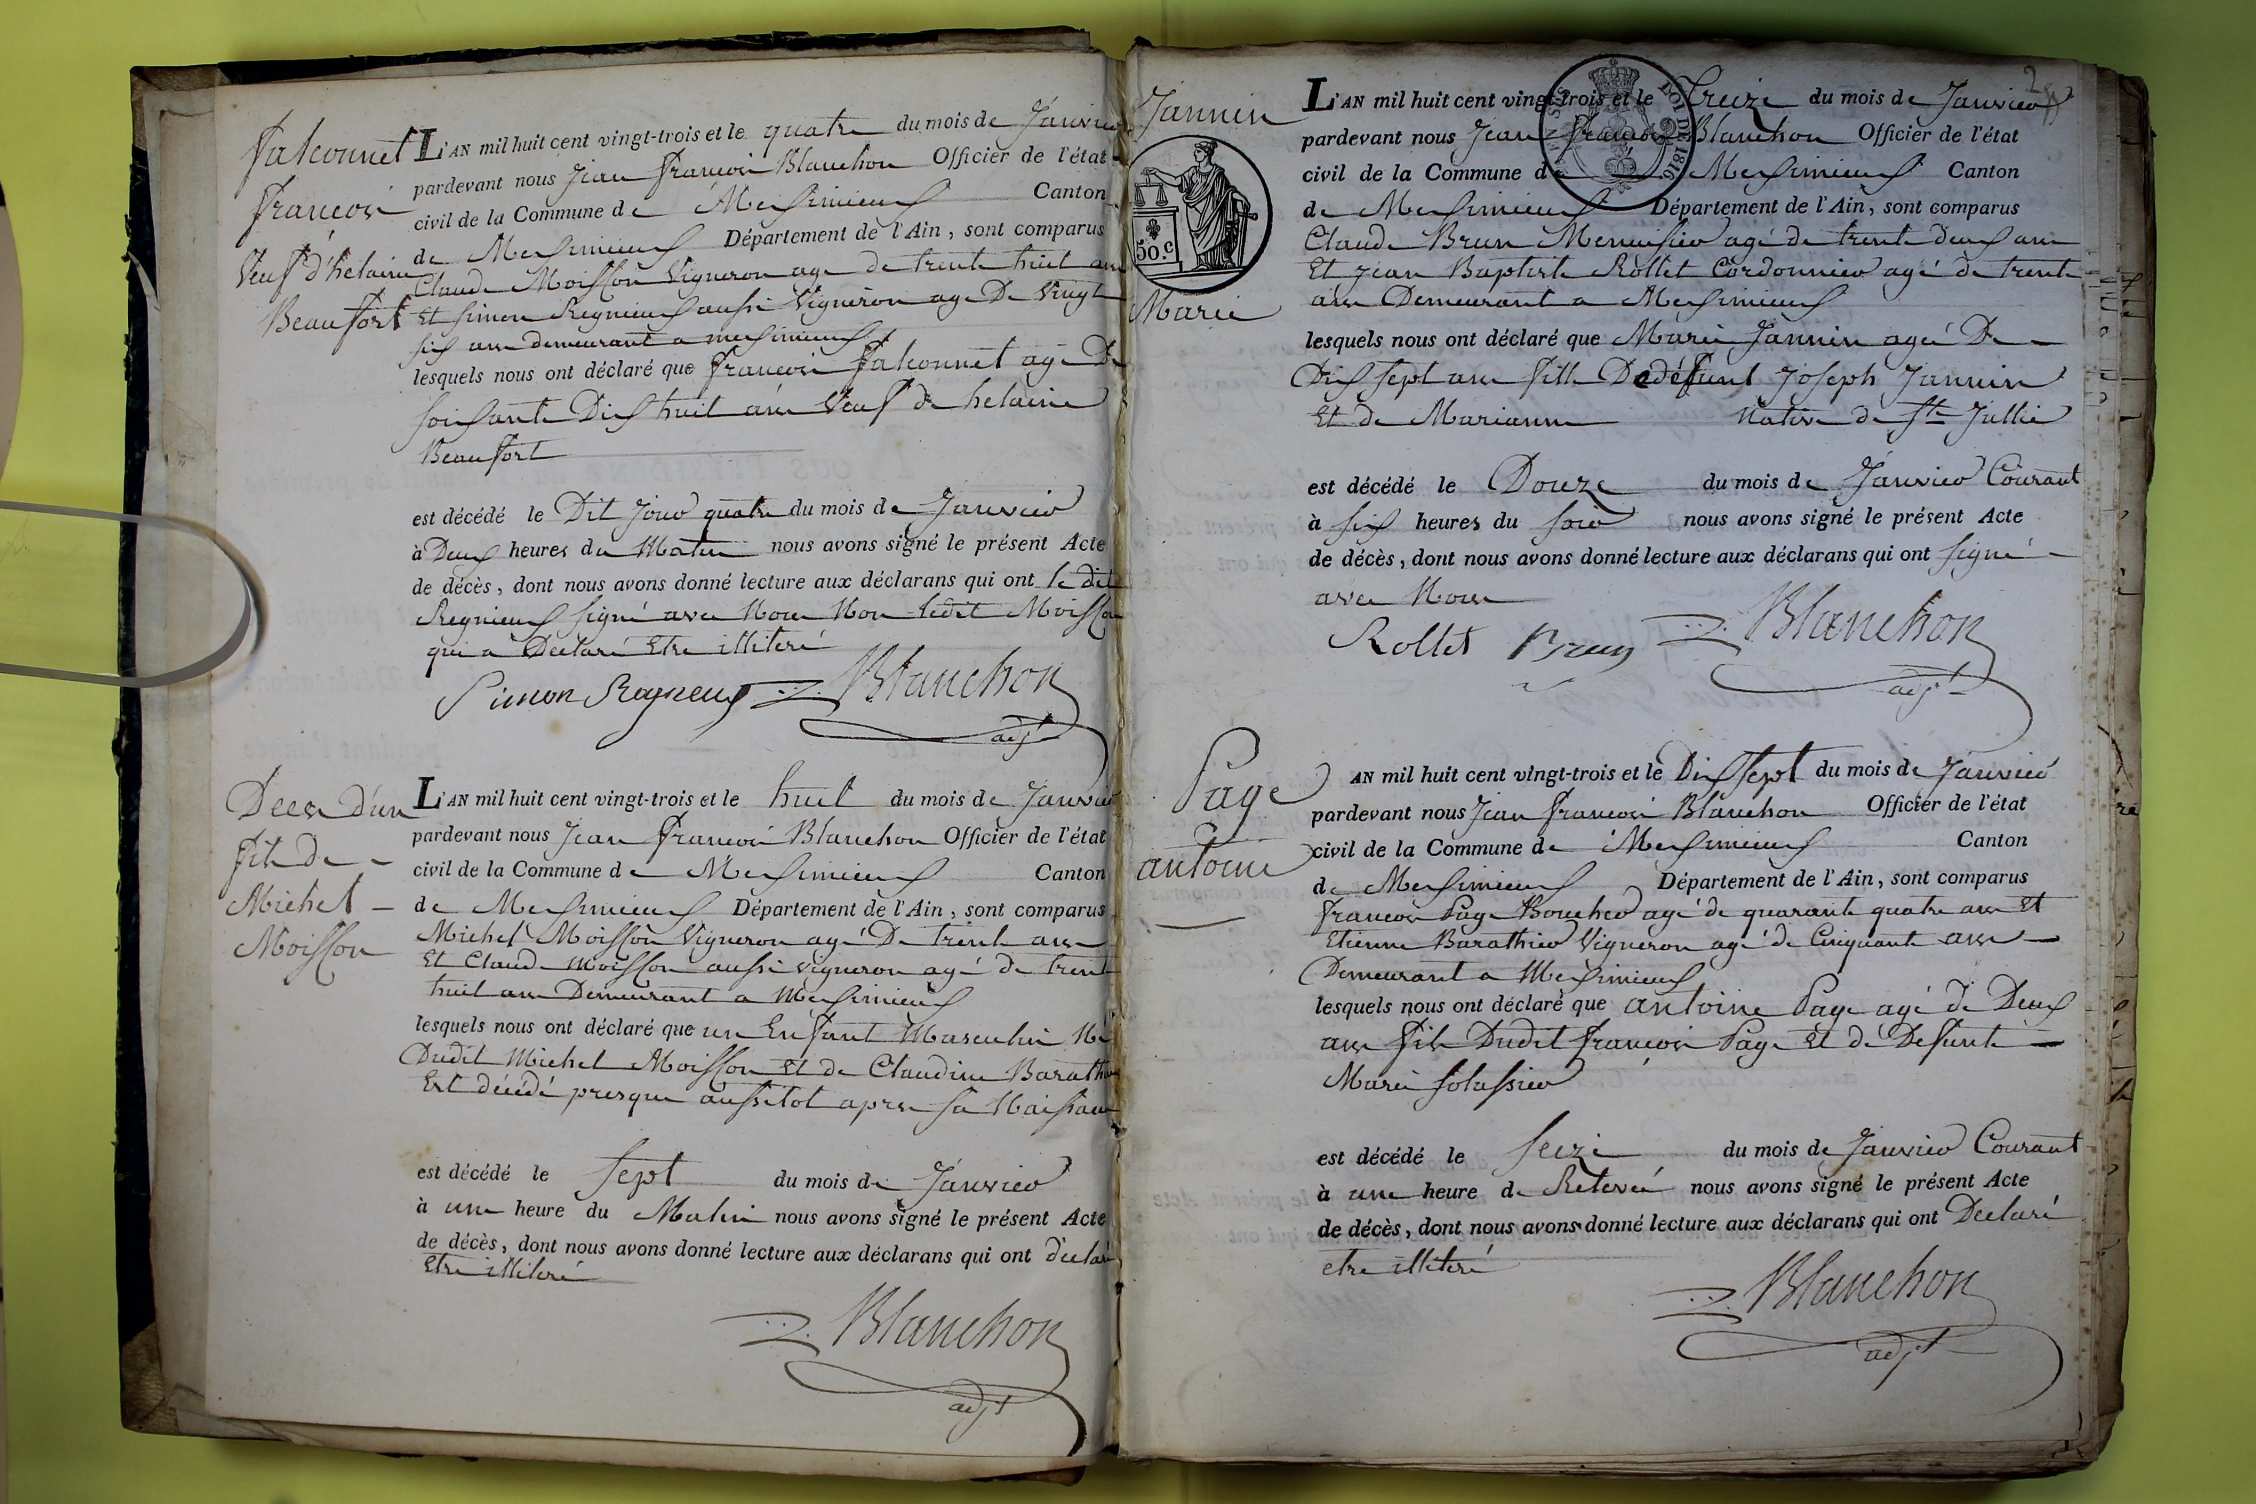 Falconnet
François
Veuf d'hélaine
Beaufort
L'AN mil huit cent vingt-trois et le quatre du mois de Janvier
pardevant nous Jean François Blanchon Officier de l'état
civil de la Commune de Messimieux Canton
de Messimieux Département de l'Ain, sont comparus
Claude Moisson Vigneron age de trente huit ans
Et Simon Regnieux aussi Vigneron age De Vingt
six ans demeurant a messimieux
lesquels nous ont déclaré que François Falconnet agé De
soisante Dix huit ans Veuf de helaine
Beaufort
est décédé le Dit Jour quatre du mois de Janvier
à Deux heures du Matin nous avons signé le présent Acte
de décès, dont nous avons donné lecture aux déclarans qui ont le dit
Regnieux signé avec Nous Non ledit Moisson
qui a Déclaré Etre illiteré
Simon Regneux Blanchon
adjt
Deces d'un
fils de
Michel
Moisson
L'AN mil huit cent vingt-trois et le huit du mois de Janvier
pardevant nous Jean François Blanchon Officier de l'état
civil de la Commune de Messimieux Canton
de Messimieux Département de l'Ain, sont comparus
Michel Moisson Vigneron agé De trente ans
Et Claude Moisson aussi vigneron agé de trente
huit ans Demeurant a Messimieux
lesquels nous ont déclaré que un Enfant Masculin Né
Dudit Michel Moisson Et de Claudine Barathier
Est décédé presque aussitot apres sa Naissance
est décédé le sept du mois de Janvier
à une heure du Matin nous avons signé le présent Acte
de décès, dont nous avons donné lecture aux déclarans qui ont déclaré
Etre illiteré
Blanchon
adjt
Jannin
50.c
Marie
LOI DE 1816
2
L'AN mil huit cent vingt-trois et le Treize du mois de Janvier
pardevant nous Jean François Blanchon Officier de l'état
civil de la Commune de Messimieux Canton
de Messimieux Département de l'Ain, sont comparus
Claude Brun Menuisier agé de trente Deux ans
Et Jean Baptiste Rollet Cordonnier agé de trente
ans Demeurant a Messimieux
lesquels nous ont déclaré que Marie Jannin agée De
Dix sept ans fille De défunt Joseph Jannin
Et de Marianne Native de Ste Jullie
est décédé le Douze du mois de Janvier Courant
à six heures du soir nous avons signé le présent Acte
de décès, dont nous avons donné lecture aux déclarans qui ont signé
avec Nous
Rollet Brun Blanchon
adjt
Page
antoine
AN mil huit cent vingt-trois et le Dix sept du mois de Janvier
pardevant nous Jean François Blanchon Officier de l'état
civil de la Commune de Messimieux Canton
de Messimieux Département de l'Ain, sont comparus
François Page Boucher agé de quarante quatre ans Et
Etienne Barathier Vigneron agé de Cinquante ans
Demeurant a Messimieux
lesquels nous ont déclaré que antoine Page agé de Deux
ans fils Dudit François Page Et de Defunte
Marie Solassier
est décédé le seize du mois de Janvier Courant
à une heure de Relevée nous avons signé le présent Acte
de décès, dont nous avons donné lecture aux déclarans qui ont Déclaré
etre illiteré
Blanchon
adjt